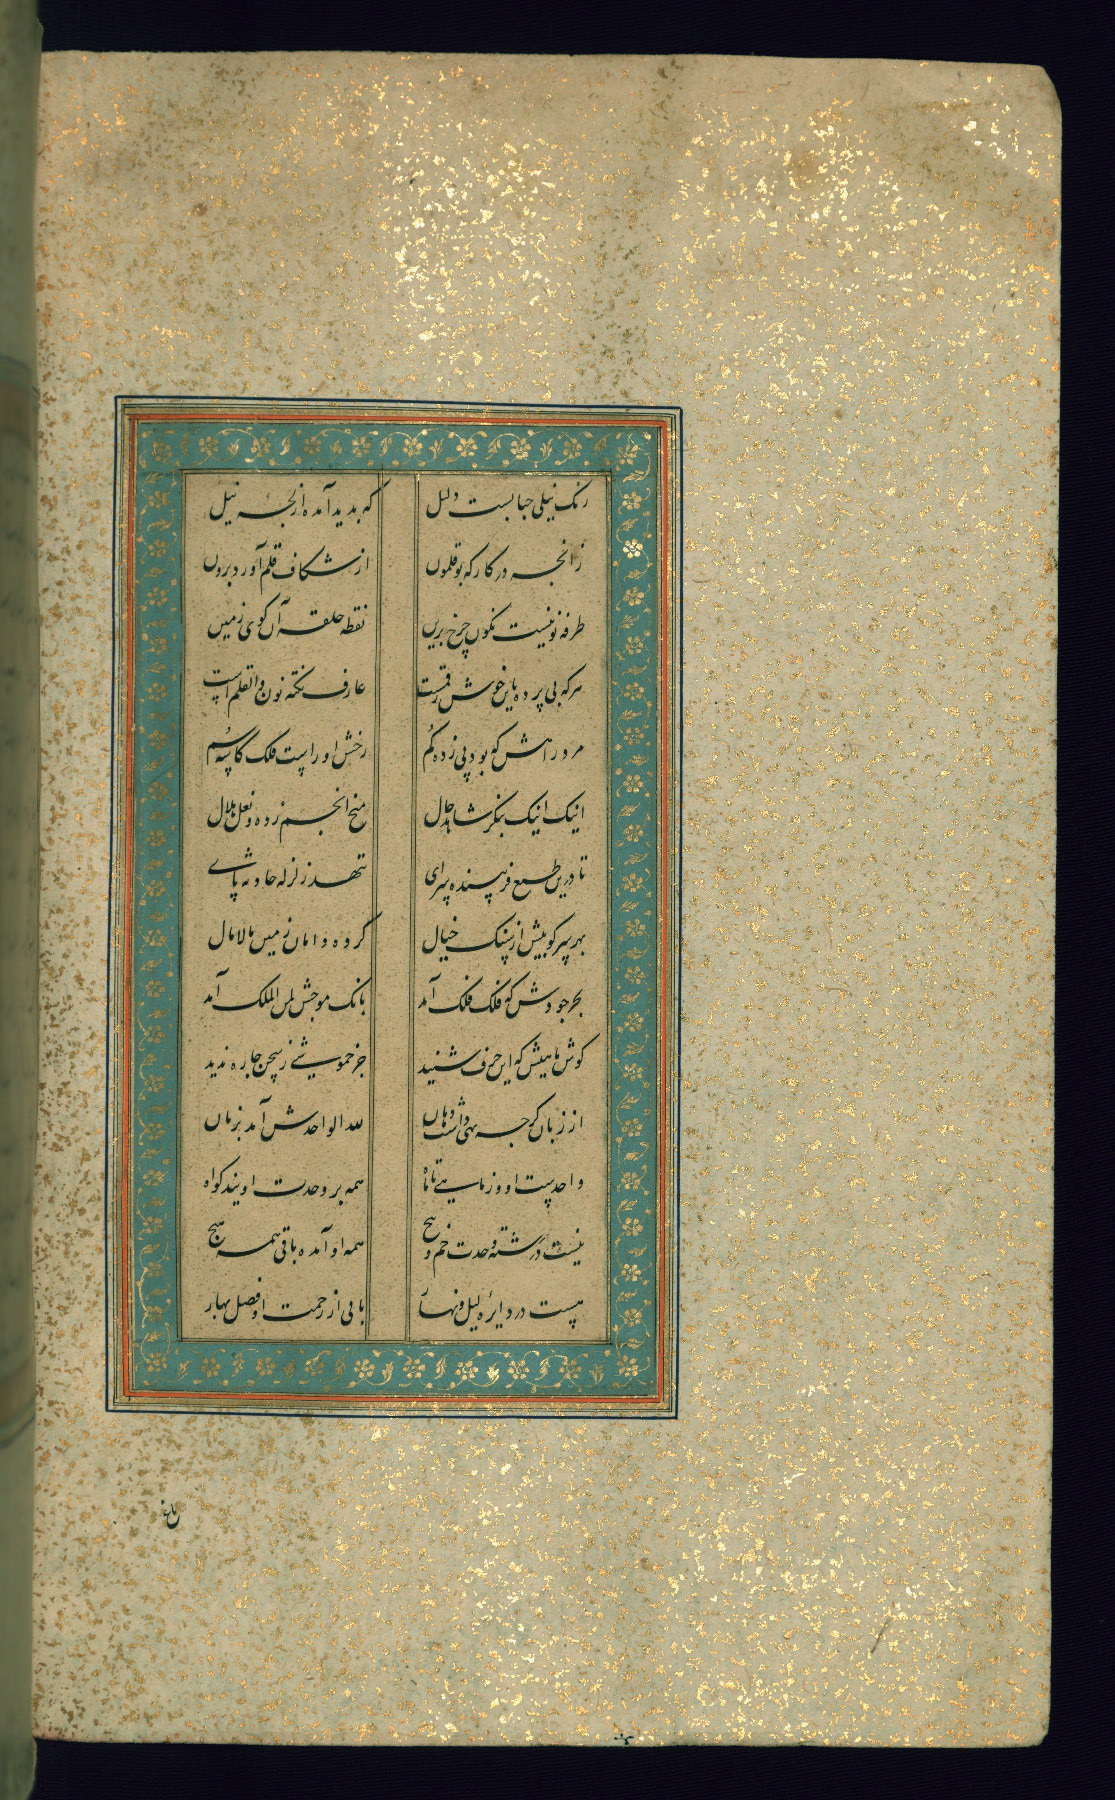 رنک نیلی حبابست دلیل که بدید آمده از لجۀ نیل
زانجه در کارکه بوقلمون از شکاف قلم آورد برون
طرفه نونیست نکون چرخ برین نقطه حلقه آن کوی زمین
هرکه بی پرده باین خوش رقمست عارف نکته نون و القلم است
مرد راهش که بود پی زده کم رخش او راست فلک کاسه سم
اینک اینک بنکر شاهد حال میخ انجم زده و نعل هلال
تا درین طبع فریبنده سرای ننهد زلزله حادثه پای
بهر بحر جودش که فلک فلک آمد بانک موجش لمن الملک آمد
کوش ماهیش که این حرف شنید جز خموشی ز سخن چاره ندید
از زبان کرچه تهی داشت دهان لله الواحدش آمد بزبان
واحدست او و ز ماهی تا ماه همه بر وحدت اویند کواه
نیست در رشته وحدت خم و پیچ همه او آمده باقی همه هیچ
هست در دایره لیل و نهار با بی از رحمت او فصل بهار
باغ